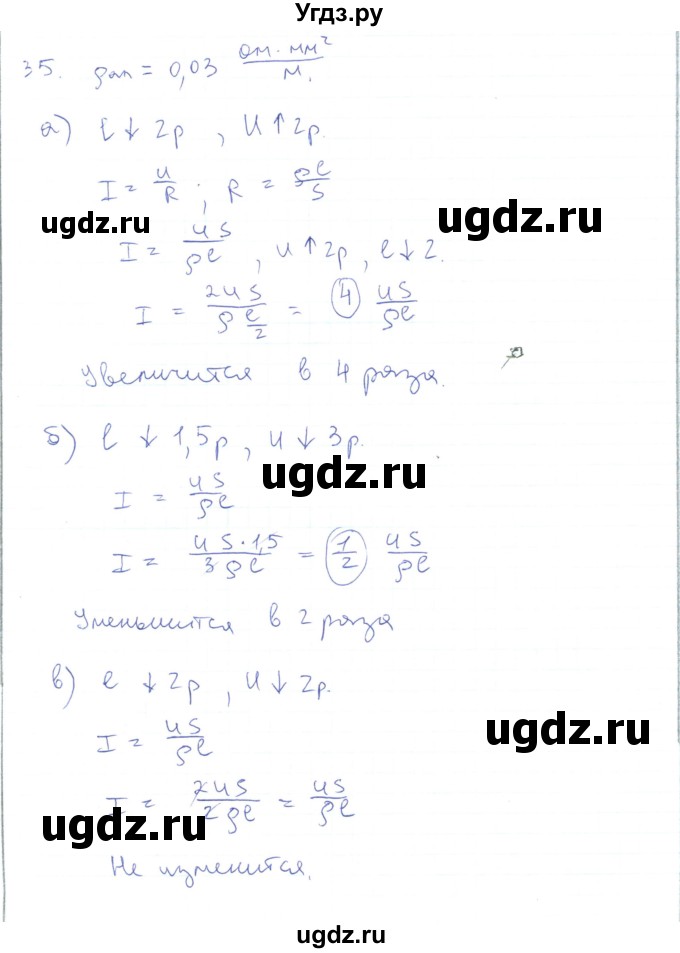 Угдз.ру
35. ρал = 0,03 Ом·мм²/м.
а) l ↓ 2р, U ↑ 2р.
I = U/R; R = ρl/S
ugdz.ru ugdz.ru
I = US/ρl, U ↑ 2р, l ↓ 2.
I = 2US/(ρ l/2) = 4 US/ρl
ugdz.ru
Увеличится в 4 раза.
б) l ↓ 1,5р, U ↓ 3р.
ugdz.ru
I = US/ρl
I = US·1,5/3ρl = 1/2 US/ρl
Уменьшится в 2 раза
в) l ↓ 2р, U ↓ 2р.
I = US/ρl
ugdz.ru
I = 2US/2ρl = US/ρl
ugdz.ru
Не изменится.
ugdz.ru